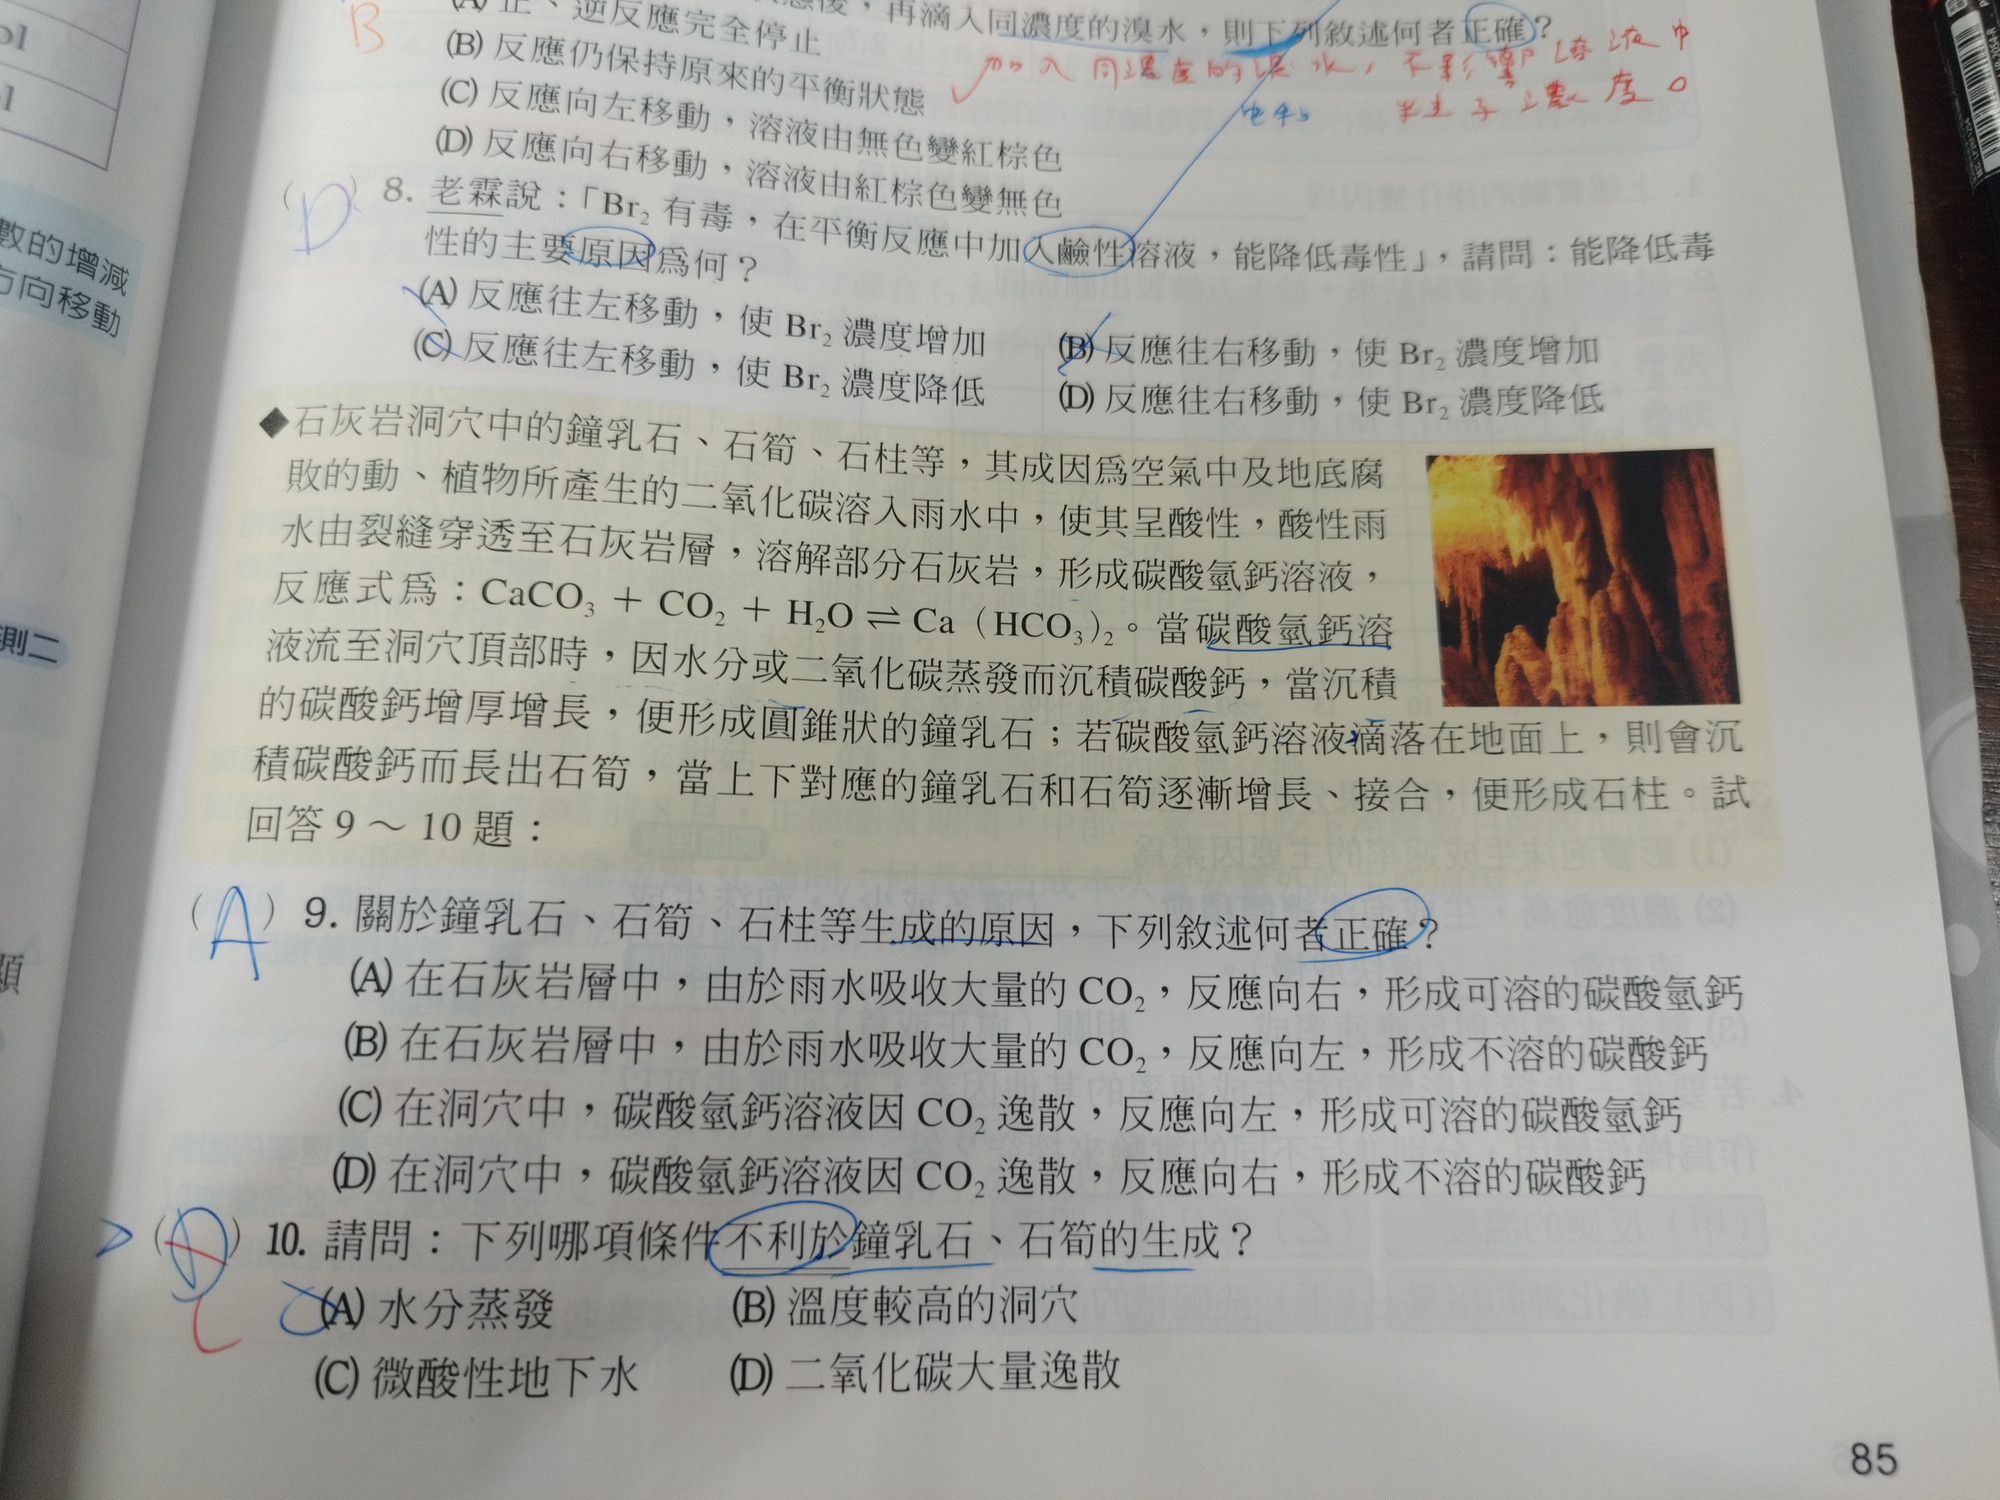 ol
l
數的增減
方向移動
測二
類
B
後，再滴入同濃度的溴水，則下列敘述何者正確？
(A) 正、逆反應完全停止
(B) 反應仍保持原來的平衡狀態
(C) 反應向左移動，溶液由無色變紅棕色
(D) 反應向右移動，溶液由紅棕色變無色
加入同濃度的溴水，不影響溶液中
濃度。
(D) 8. 老霖說：「Br₂ 有毒，在平衡反應中加入鹼性溶液，能降低毒性」，請問：能降低毒
性的主要原因為何？
(A) 反應往左移動，使 Br₂ 濃度增加
(B) 反應往右移動，使 Br₂ 濃度增加
(C) 反應往左移動，使 Br₂ 濃度降低
(D) 反應往右移動，使 Br₂ 濃度降低
◆石灰岩洞穴中的鐘乳石、石筍、石柱等，其成因為空氣中及地底腐
敗的動、植物所產生的二氧化碳溶入雨水中，使其呈酸性，酸性雨
水由裂縫穿透至石灰岩層，溶解部分石灰岩，形成碳酸氫鈣溶液，
反應式為：CaCO₃ + CO₂ + H₂O ⇌ Ca（HCO₃）₂。當碳酸氫鈣溶
液流至洞穴頂部時，因水分或二氧化碳蒸發而沉積碳酸鈣，當沉積
的碳酸鈣增厚增長，便形成圓錐狀的鐘乳石；若碳酸氫鈣溶液滴落在地面上，則會沉
積碳酸鈣而長出石筍，當上下對應的鐘乳石和石筍逐漸增長、接合，便形成石柱。試
回答 9 ～ 10 題：
(A) 9. 關於鐘乳石、石筍、石柱等生成的原因，下列敘述何者正確？
(A) 在石灰岩層中，由於雨水吸收大量的 CO₂，反應向右，形成可溶的碳酸氫鈣
(B) 在石灰岩層中，由於雨水吸收大量的 CO₂，反應向左，形成不溶的碳酸鈣
(C) 在洞穴中，碳酸氫鈣溶液因 CO₂ 逸散，反應向左，形成可溶的碳酸氫鈣
(D) 在洞穴中，碳酸氫鈣溶液因 CO₂ 逸散，反應向右，形成不溶的碳酸鈣
(D) 10. 請問：下列哪項條件不利於鐘乳石、石筍的生成？
C
(A) 水分蒸發
(B) 溫度較高的洞穴
(C) 微酸性地下水
(D) 二氧化碳大量逸散
85